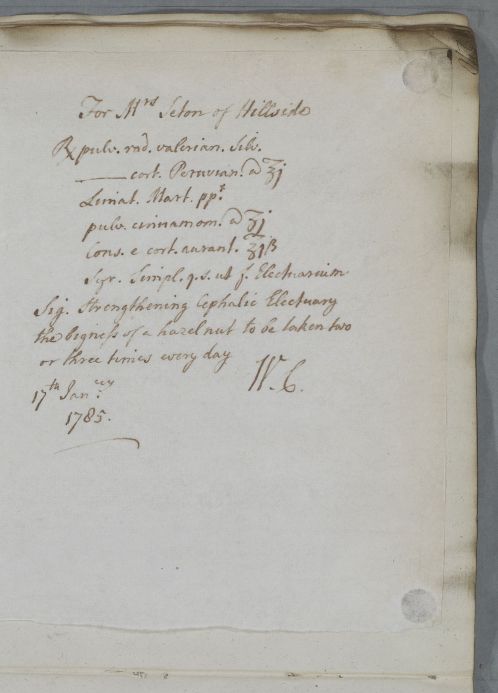 For Mrs Seton of Hillside
℞ pulv. rad. valerian. silv.
—— cort. Peruvian. a ʒj
Limat. Mart. ppt
pulv. cinnamom. a ʒj
Cons. e cort. aurant. ℥jß
Syr. Simpl. q.s. ut f. Electuarium
Sig. Strengthening Cephalic Electuary
the bigness of a hazel nut to be taken two
or three times every day
W. C.
17th Jan.ry
1785.